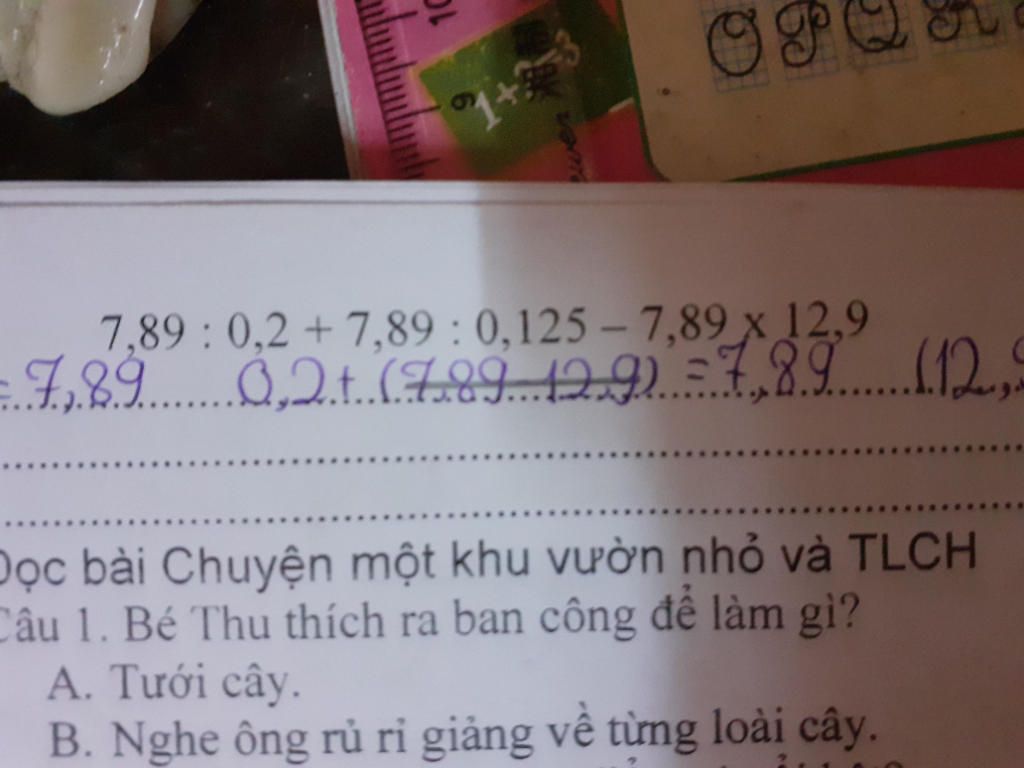 10
9
1+
O P Q R
7,89 : 0,2 + 7,89 : 0,125 – 7,89 x 12,9
= 7,89 0,2 + (7,89 – 12,9) = 7,89 (12,9
Đọc bài Chuyện một khu vườn nhỏ và TLCH
Câu 1. Bé Thu thích ra ban công để làm gì?
A. Tưới cây.
B. Nghe ông rủ rỉ giảng về từng loài cây.